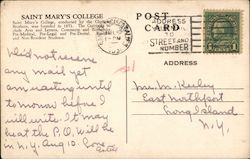 SAINT MARY'S COLLEGE
Saint Mary's College, conducted by the Christian
Brothers, was founded in 1863. The
study Arts and Letters, Commerce and
Pre-Medical, Pre-Legal and Pre-Dental.
a Non Resident Students.
POST
CARD
ADDRESS
TO
STREET AND
NUMBER
1
ADDRESS
Did not receive
any mail yet
am waiting until
to morrow before I
will write. It may
beat the P.O. Will be
in N.Y. Aug 10. Love
Mr. M. Henley
East Northport
Long Island
N.Y.